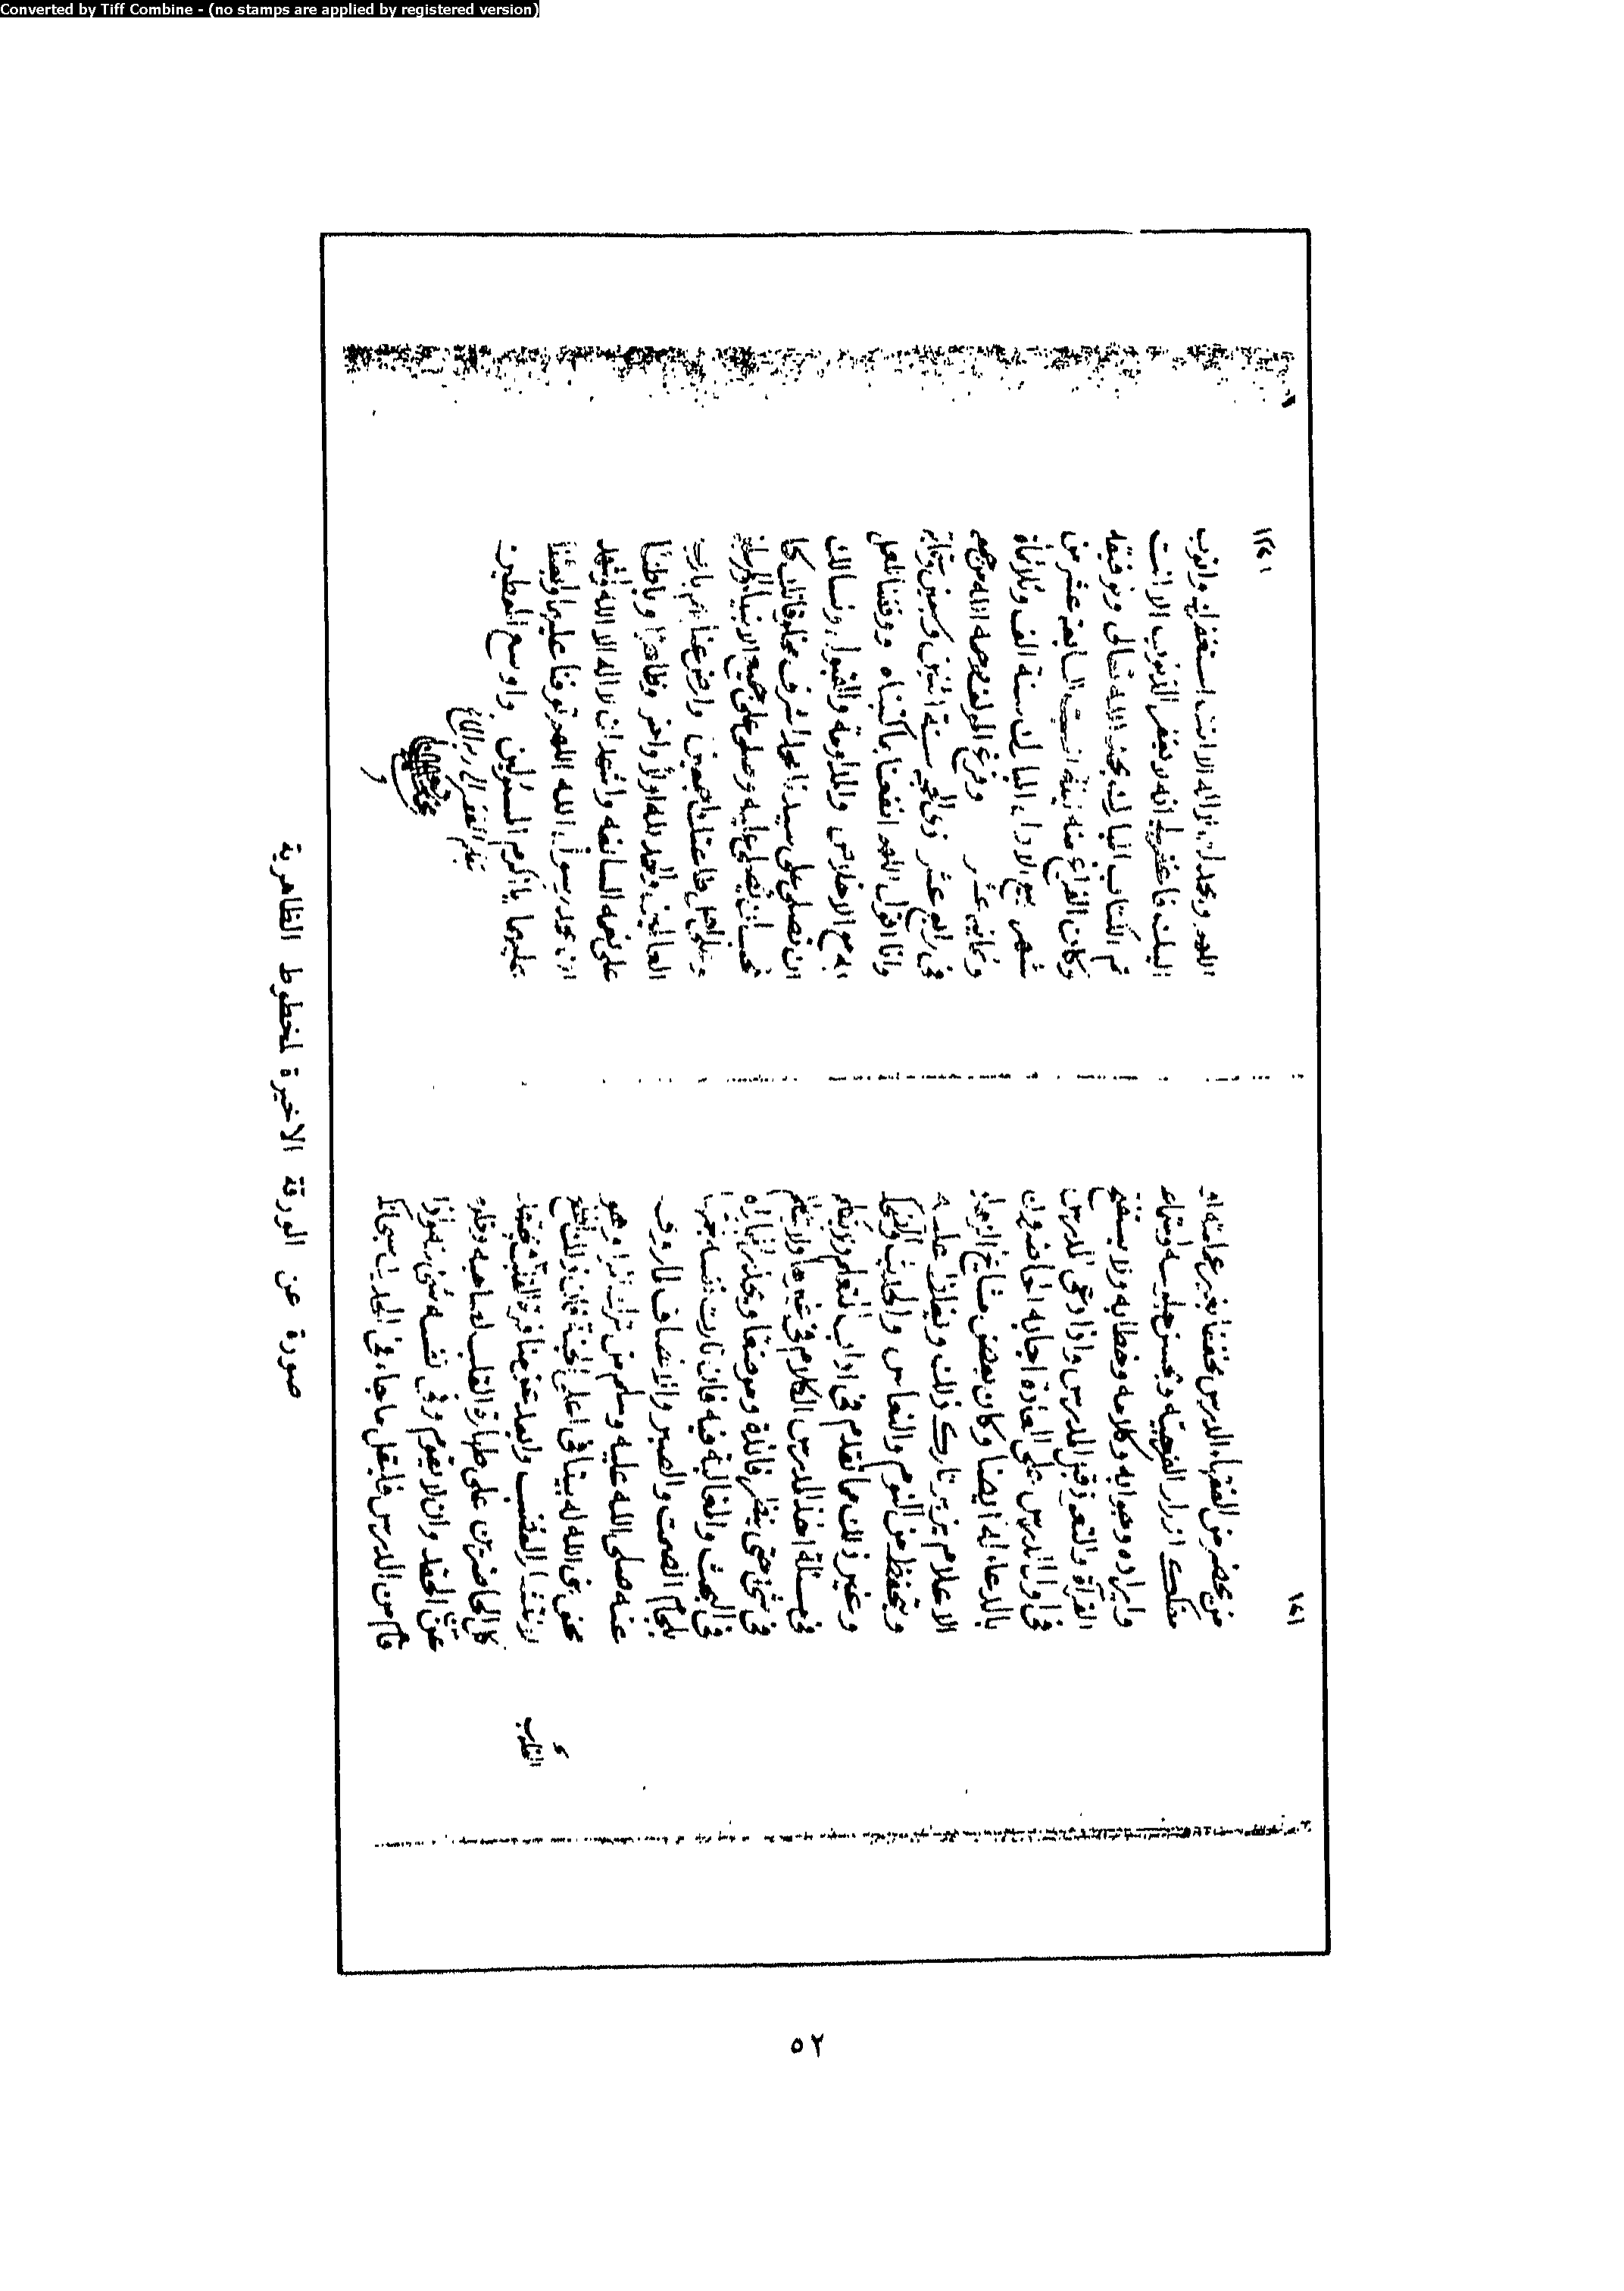 Converted by Tiff Combine - (no stamps are applied by registered version)
من يحضر من الفقهاء الدرس مخففا بغير عمامة او
مفكك ازرار الفرجية ويحسن جلوسه واستماعه
وايراده وجوابه وكلامه وخطابه ولا يستفتح
القراءة والتعوذ قبل المدرس واذا دعى المدرس
فى اول الدرس على العادة اجابه الحاضرون
بالدعاء له ايضا وكان بعض مشايخ الزهاد
الاعلام يزبر تارك ذلك ويغلظ عليه
ويتحفظ من النوم والنعاس والحديث والضحك
وغير ذلك مما تقدم فى اداب المتعلم ولا يتكلم
فى مسئلة اخذ المدرس الكلام فى غيرها ولا يتكلم
فى شئ حتى ينظر فائدة وموضعا ويحذر المماراة
فى البحث والمغالبة فيه فان ثارت نفسه الجمها
بلجام الصمت والصبر والانقياد لما روى
عنه صلى الله عليه وسلم من ترك المراء وهو
محق بنى الله له بيتا فى اعلى الجنة فان ذلك اقطع
لانتشار الغضب وابعد عن منافرة القلوب
كل الحاضرين على طهارة القلب لصاحبه وخلوه
عن الحقد وان لا يقوم وفى نفسه شئ منه واذا
قام من الدرس فليقل ما جاء فى الحديث سبحانك
اللهم وبحمدك لا اله الا انت استغفرك واتوب
اليك فاغفر لى انه لا يغفر الذنوب الا انت
تم الكتاب المبارك بحمد الله تعالى وتوفيقه
وكان الفراغ منه ليلة السبت السابعة عشر من
شهر ربيع الاول المبارك سنة الف وثلاثمائة
وثمانية عشر وفرغ المؤلف رحمه الله من جمعه
فى رابع عشر ذى الحجة سنة اثنين وسبعين وستمائة
وانا اقول اللهم انفعنا بما كتبناه ووفقنا للعمل
به مع الاخلاص والمداومة والقبول ونسالك
ان تصلى على سيدنا محمد اشرف مخلوقاتك كما
العالمين والحمد لله اولا واخر وظاهرا وباطنا
على نعمه السابغة واشهد ان لا اله الا الله واشهد
ان محمد رسول الله اللهم توفنا عليها وابعثنا
عليها يا اكرم المسؤلين واوسع المعطين
بقلم الفقير الى
صورة عن الورقة الاخيرة لمخطوط الظاهرية
٥٢